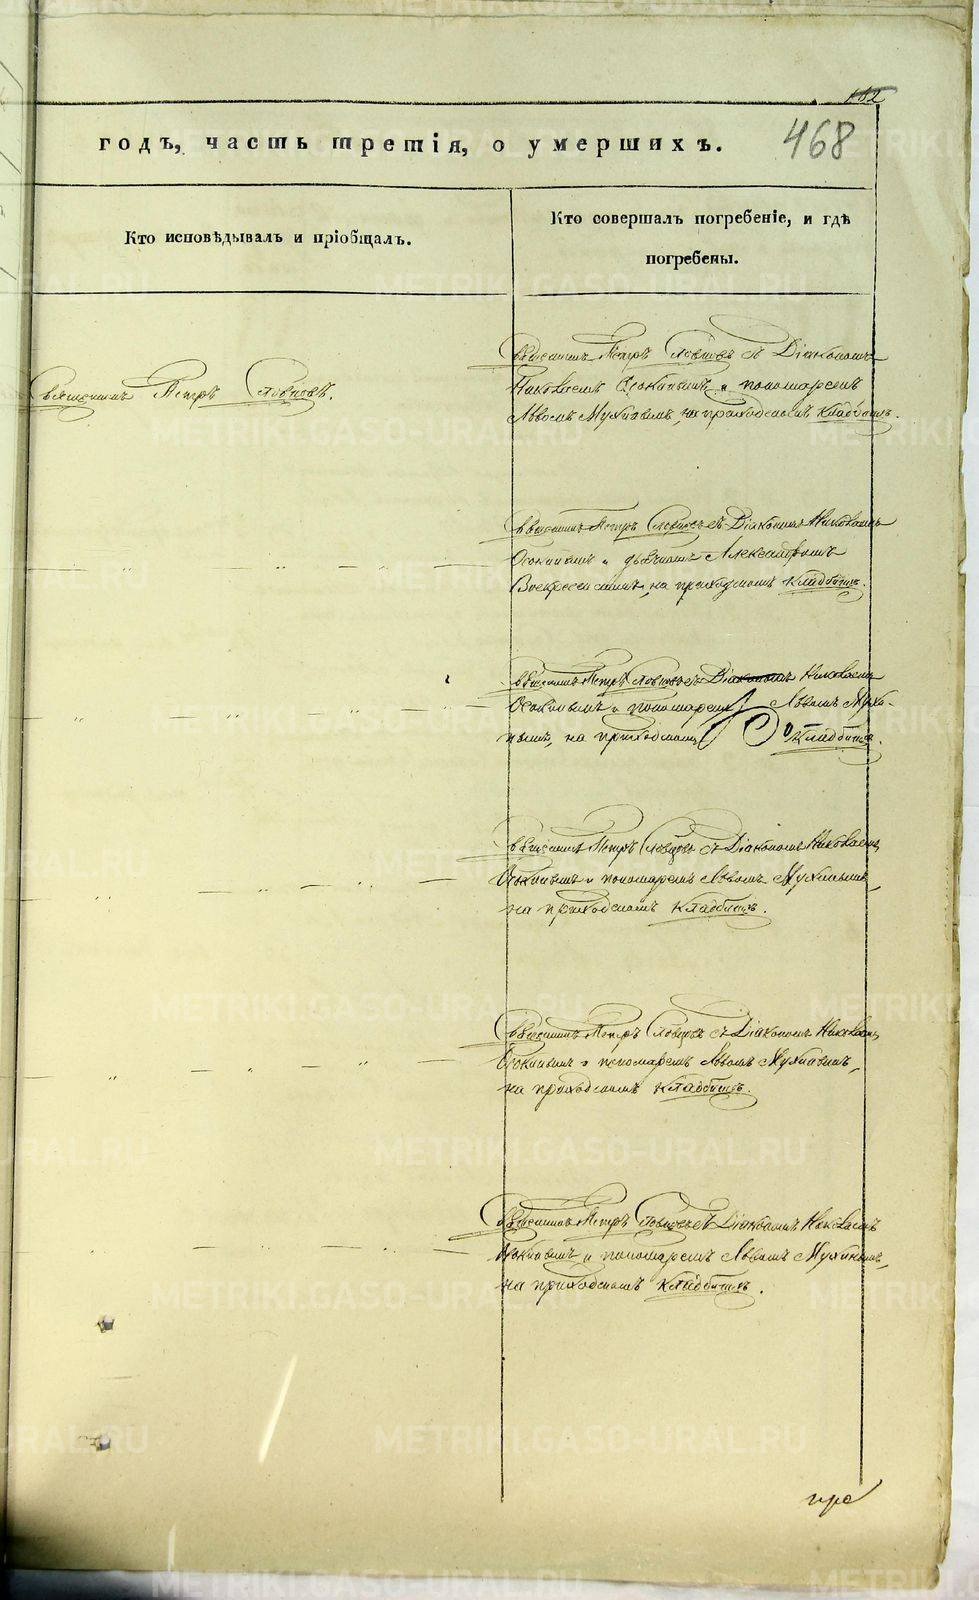 182
468
годъ, часть третія, о умершихъ.
Кто исповѣдывалъ и пріобщалъ.
Кто совершалъ погребеніе, и гдѣ
погребены.
Священникъ Петръ Словцовъ.
Священникъ Петръ Словцовъ съ Діакономъ
Николаемъ Осокинымъ и пономаремъ
Львомъ Мухинымъ, на приходскомъ кладбищѣ.
Священникъ Петръ Словцовъ съ Діакономъ Николаемъ
Осокинымъ и дьячкомъ Александромъ
Воскресенскимъ, на приходскомъ кладбищѣ.
Священникъ Петръ Словцовъ съ Діакономъ Николаемъ
Осокинымъ и пономаремъ Львомъ Мухи-
нымъ, на приходскомъ кладбищѣ.
Священникъ Петръ Словцовъ съ Діакономъ Николаемъ
Осокинымъ и пономаремъ Львомъ Мухинымъ,
на приходскомъ кладбищѣ.
Священникъ Петръ Словцовъ съ Діакономъ Николаемъ
Осокинымъ и пономаремъ Львомъ Мухинымъ,
на приходскомъ кладбищѣ.
Священникъ Петръ Словцовъ съ Діакономъ Николаемъ
Осокинымъ и пономаремъ Львомъ Мухинымъ,
на приходскомъ кладбищѣ.
METRIKI.GASO-URAL.RU